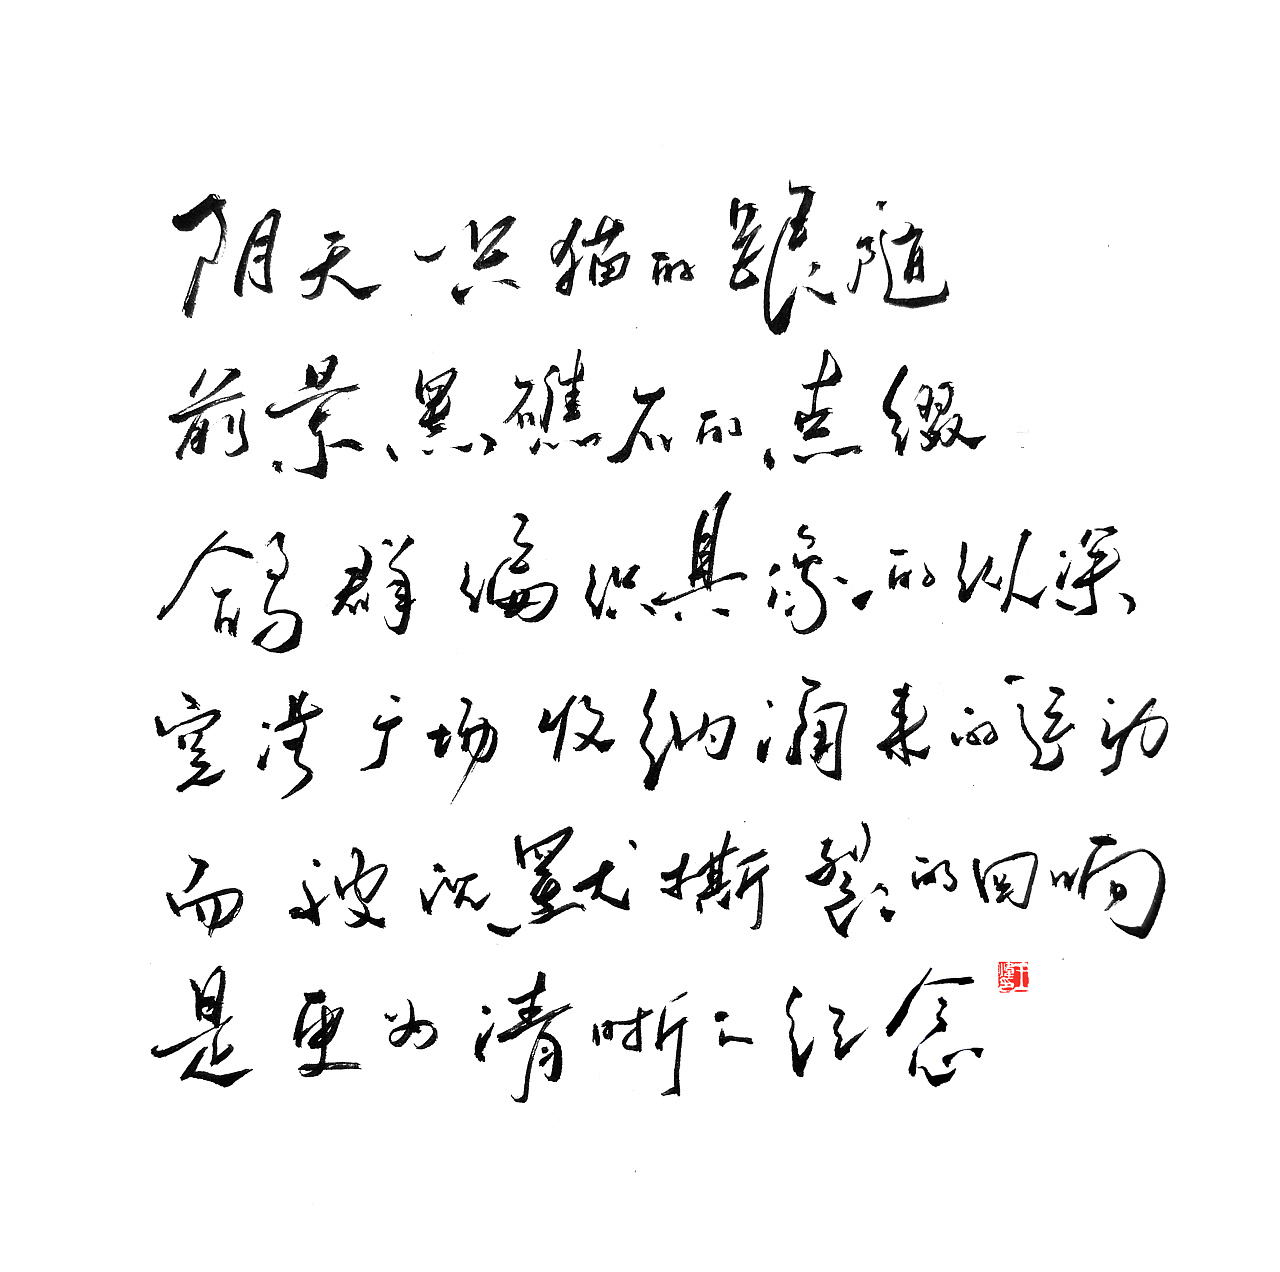 阴天一只猫的跟随
前景黑礁石的点缀
鸽群编织具像的纵深
空港广场收纳涌来的运动
而被沉默撕裂的回响
是更为清晰之纪念